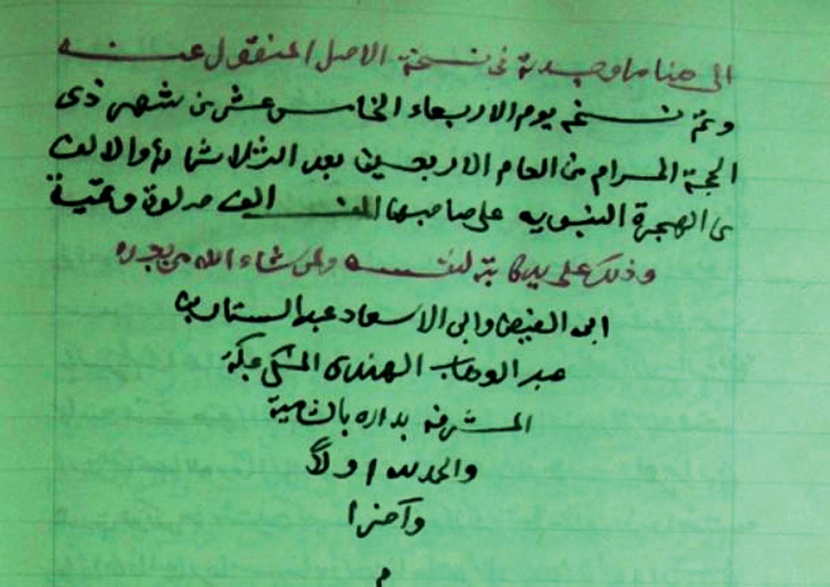 الى هنا ما وجدته في نسخة الاصل المنقول عنه
وتم نسخه يوم الاربعاء الخامس عشر من شهر ذى
الحجة الحرام من العام الاربعين بعد الثلاثمائة والالف
من الهجرة النبويه على صاحبها الف الف صلوة وتحية
وذلك على يد كاتبه لنفسه ولمن شاء الله من بعده
ابى الفيض وابى الاسعاد عبد الستار بن
عبد الوهاب الهندى المكى بمكة
المشرفه بداره بالشامية
والحمد لله اولاً
وآخرا
م